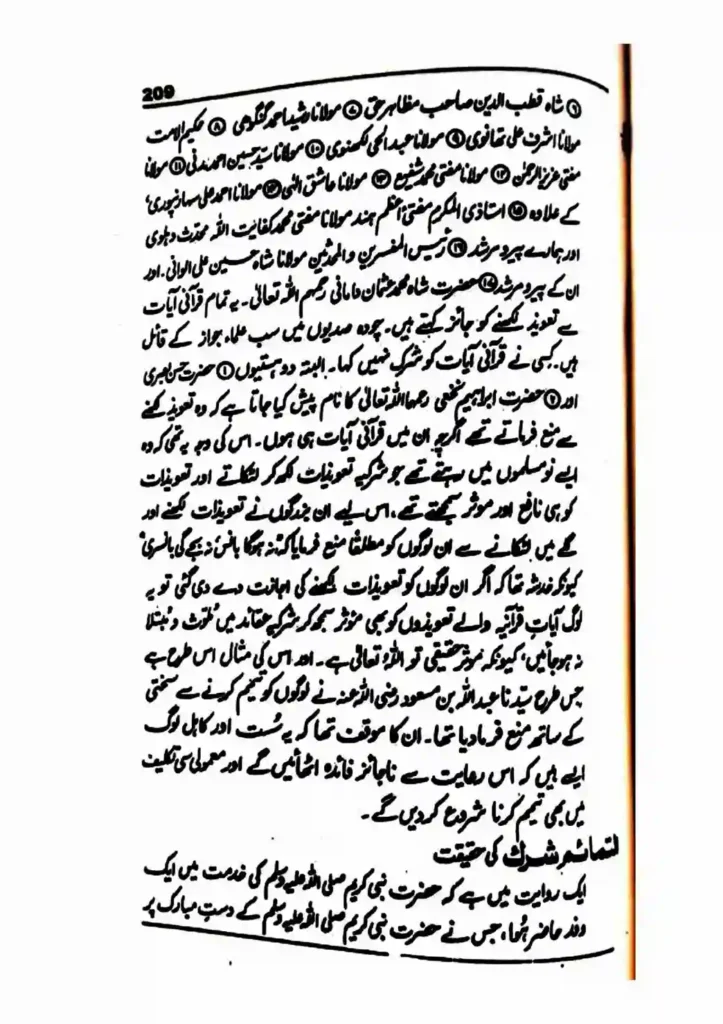 209
۶ شاہ قطب الدین صاحب مظاہر حق ۷ مولانا رشید احمد گنگوہی ۸ حکیم الامت
مولانا اشرف علی تھانوی ۹ مولانا عبد الحی لکھنوی ۱۰ مولانا سید حسین احمد مدنی ۱۱ مولانا
مفتی عزیز الرحمٰن ۱۲ مولانا مفتی محمد شفیع ۱۳ مولانا عاشق الٰہی ۱۴ مولانا احمد علی سہارنپوری
کے علاوہ ۱۵ استاذی المکرم مفتیٔ اعظم ہند مولانا مفتی محمد کفایت اللہ محدث دہلوی
اور ہمارے پیر و مرشد ۱۶ رئیس المفسرین والمحدثین مولانا شاہ حسین علی الوانی ۔ اور
ان کے پیر و مرشد ۱۷ حضرت شاہ محمد عثمان دامانی رحمہم اللہ تعالیٰ ۔ یہ تمام قرآنی آیات
سے تعویذ لکھنے کو جائز کہتے ہیں۔ چودہ صدیوں میں سب علماء جواز کے قائل
ہیں۔ کسی نے قرآنی آیات کو شرک نہیں کہا۔ البتہ دو ہستیوں ۱ حضرت حسن بصری
اور ۲ حضرت ابراہیم نخعی رحمہما اللہ تعالیٰ کا نام پیش کیا جاتا ہے کہ وہ تعویذ لکھنے
سے منع فرماتے تھے اگرچہ ان میں قرآنی آیات ہی ہوں۔ اس کی وجہ یہ تھی کہ وہ
ایسے نو مسلموں میں رہتے تھے جو شرکیہ تعویذات لکھ کر لٹکاتے اور تعویذات
کو ہی نافع اور موثر سمجھتے تھے، اس لیے ان بزرگوں نے تعویذات لکھنے اور
گلے میں لٹکانے سے ان لوگوں کو مطلقًا منع فرمایا کہ "نہ ہوگا بانس نہ بجے گی بانسری"
کیونکہ خدشہ تھا کہ اگر ان لوگوں کو تعویذات لکھنے کی اجازت دے دی گئی تو یہ
لوگ آیات قرآنیہ والے تعویذوں کو بھی موثر سمجھ کر شرکیہ عقائد میں ملوث و مبتلا
نہ ہو جائیں، کیونکہ موثر حقیقی تو اللہ تعالیٰ ہے۔ اور اس کی مثال اس طرح ہے
جس طرح سیّدنا عبد اللہ بن مسعود رضی اللہ عنہ نے لوگوں کو تیمم کرنے سے سختی
کے ساتھ منع فرما دیا تھا۔ ان کا موقف تھا کہ یہ سُست اور کاہل لوگ
ایسے ہیں کہ اس روایت سے ناجائز فائدہ اٹھائیں گے اور معمولی سی تکلیف
میں بھی تیمم کرنا شروع کر دیں گے۔
التمائم شرک کی حقیقت
ایک روایت میں ہے کہ حضرت نبی کریم صلی اللہ علیہ وسلم کی خدمت میں ایک
وفد حاضر ہُوا، جس نے حضرت نبی کریم صلی اللہ علیہ وسلم کے دستِ مبارک پر